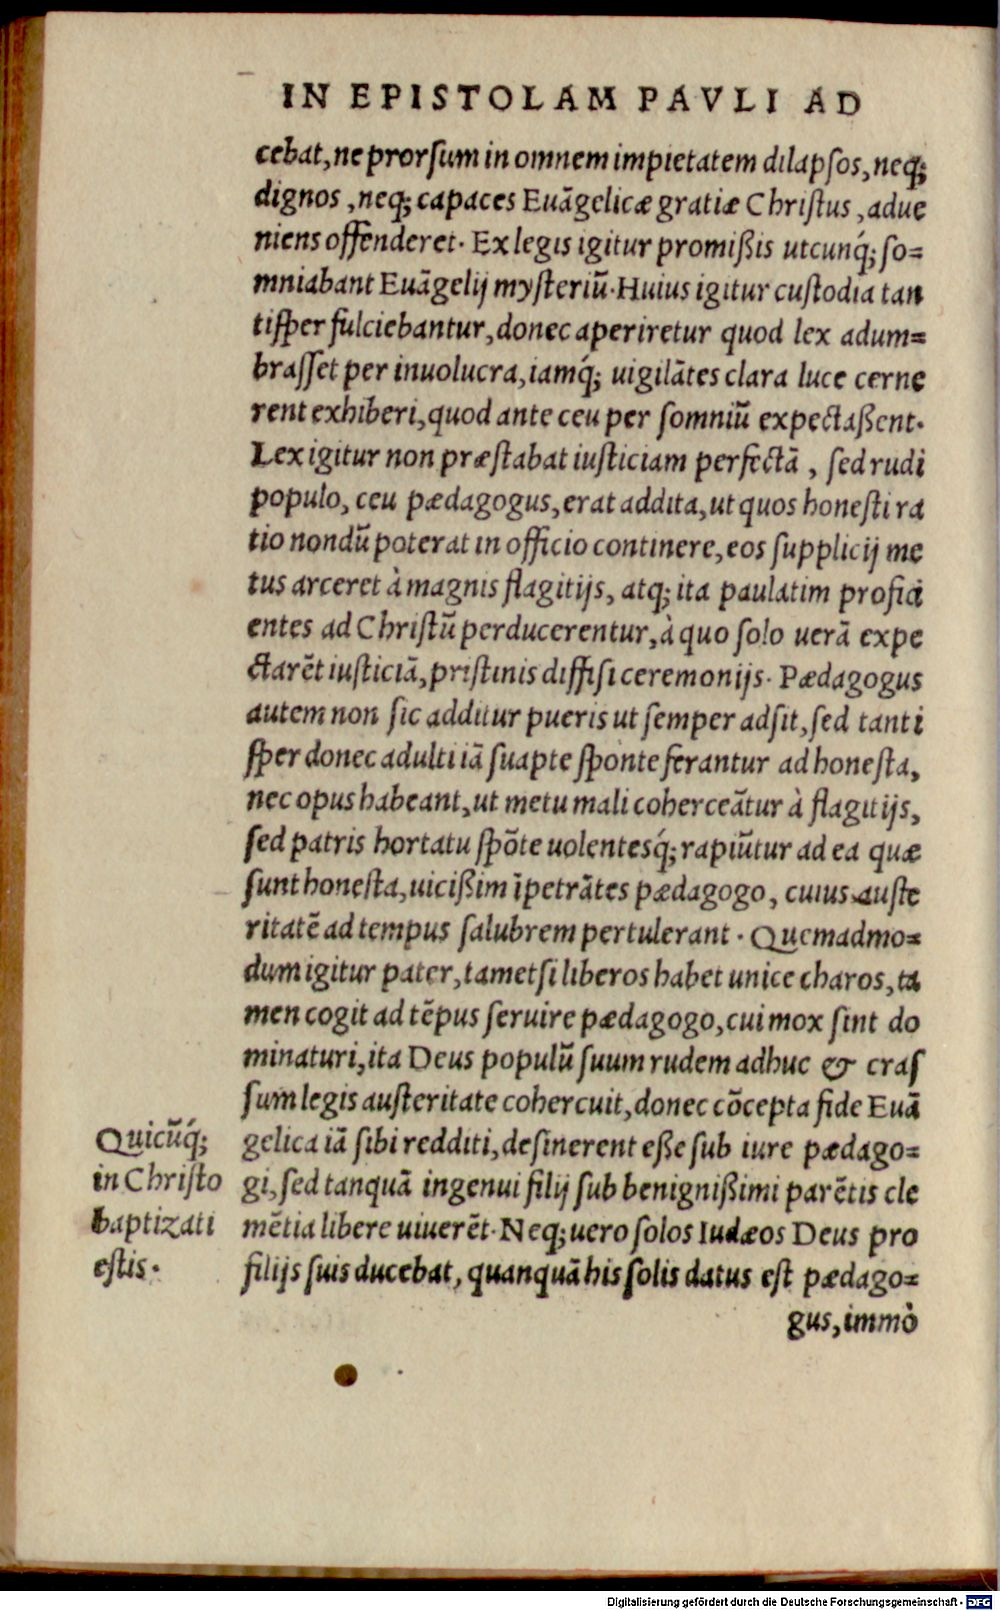 IN EPISTOLAM PAVLI AD
cebat, ne prorsum in omnem impietatem dilapsos, neq;
dignos, neq; capaces Euãgelicæ gratiæ Christus, adue
niens offenderet. Ex legis igitur promißis utcunq́; so=
mniabant Euãgelij mysteriũ. Huius igitur custodia tan
tisper fulciebantur, donec aperiretur quod lex adum=
brasset per inuolucra, iamq́; uigilãtes clara luce cerne
rent exhiberi, quod ante ceu per somniũ expectaßent.
Lex igitur non præstabat iusticiam perfectã, sed rudi
populo, ceu pædagogus, erat addita, ut quos honesti ra
tio nondũ poterat in officio continere, eos supplicij me
tus arceret à magnis flagitijs, atq; ita paulatim profici
entes ad Christũ perducerentur, à quo solo uerã expe
ctarẽt iusticiã, pristinis diffisi ceremonijs. Pædagogus
autem non sic additur pueris ut semper adsit, sed tanti
sper donec adulti iã suapte sponte ferantur ad honesta,
nec opus habeant, ut metu mali coherceãtur à flagitijs,
sed patris hortatu spõte uolentesq́; rapiũtur ad ea quæ
sunt honesta, uicißim ĩpetrãtes pædagogo, cuius auste
ritatẽ ad tempus salubrem pertulerant. Quemadmo=
dum igitur pater, tametsi liberos habet unice charos, ta
men cogit ad tẽpus seruire pædagogo, cui mox sint do
minaturi, ita Deus populũ suum rudem adhuc & cras
sum legis austeritate cohercuit, donec cõcepta fide Euã
gelica iã sibi redditi, desinerent eße sub iure pædago=
gi, sed tanquã ingenui filij sub benignißimi parẽtis cle
mẽtia libere uiuerẽt. Neq; uero solos Iudæos Deus pro
filijs suis ducebat, quanquã his solis datus est pædago=
gus, immò
Quicũq́;
in Christo
baptizati
estis.
Digitalisierung gefördert durch die Deutsche Forschungsgemeinschaft - DFG